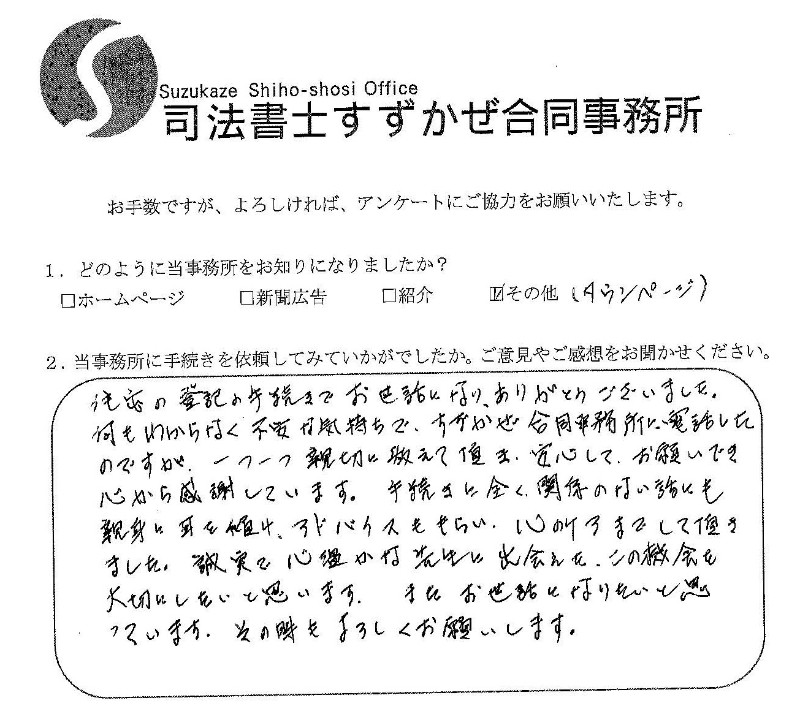 Suzukaze Shiho-shosi Office
司法書士すずかぜ合同事務所
お手数ですが、よろしければ、アンケートにご協力をお願いいたします。
1．どのように当事務所をお知りになりましたか？
□ホームページ □新聞広告 □紹介 ☑その他（タウンページ）
2．当事務所に手続きを依頼してみていかがでしたか。ご意見やご感想をお聞かせください。
の登記の手続きで お世話になり、ありがとうございました。
何もわからなく 不安な気持ちで、すずかぜ合同事務所に電話した
のですが、一つ一つ親切に教えて頂き、安心して、お願いでき
心から感謝しています。手続きに全く関係のない話にも
親身に耳を傾け、アドバイスももらい、心のケアまでして頂き
ました。誠実で心温かな先生に出会えた、この機会を
大切にしたいと思います。またお世話になりたいと思
っています。その時もよろしくお願いします。